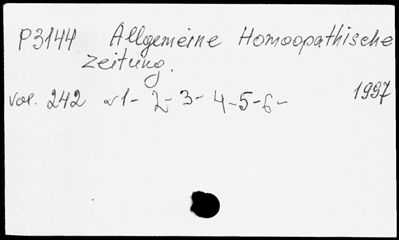 P3144 Allgemeine Homoopathische
Zeitung.
Vol. 242 N1- 2- 3- 4-5-6- 1997